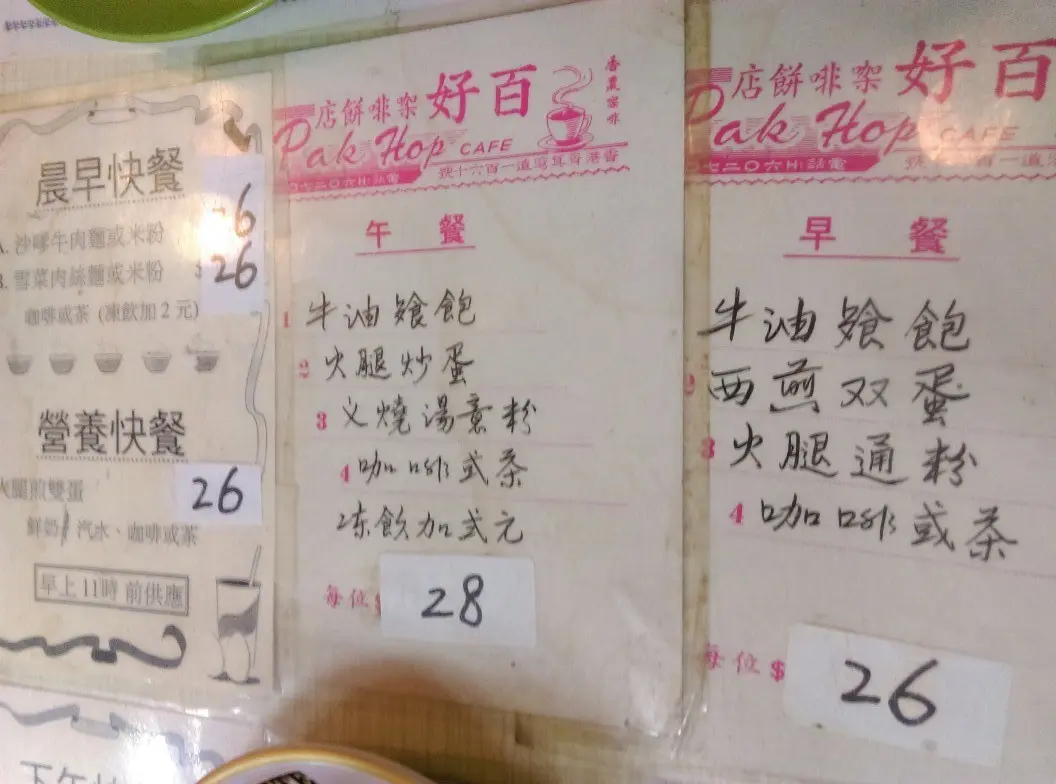 晨早快餐
A. 沙嗲牛肉麵或米粉 26
B. 雪菜肉絲麵或米粉 $ 26
咖啡或茶 (凍飲加2元)
營養快餐
火腿煎雙蛋 26
鮮奶/汽水、咖啡或茶
早上11時前供應
下午
百好架啡餅店
香濃架啡
Pak Hop CAFE
香港筲箕灣道一百六十號
電話:H六〇二七
午 餐
1 牛油餐飽
2 火腿炒蛋
3 叉燒湯意粉
4 咖啡或茶
冻飲加弍元
每位$ 28
百好架啡餅店
Pak Hop CAFE
號
電話:H六〇二七
早 餐
牛油餐飽
2 西煎双蛋
3 火腿通粉
4 咖啡或茶
每位$ 26